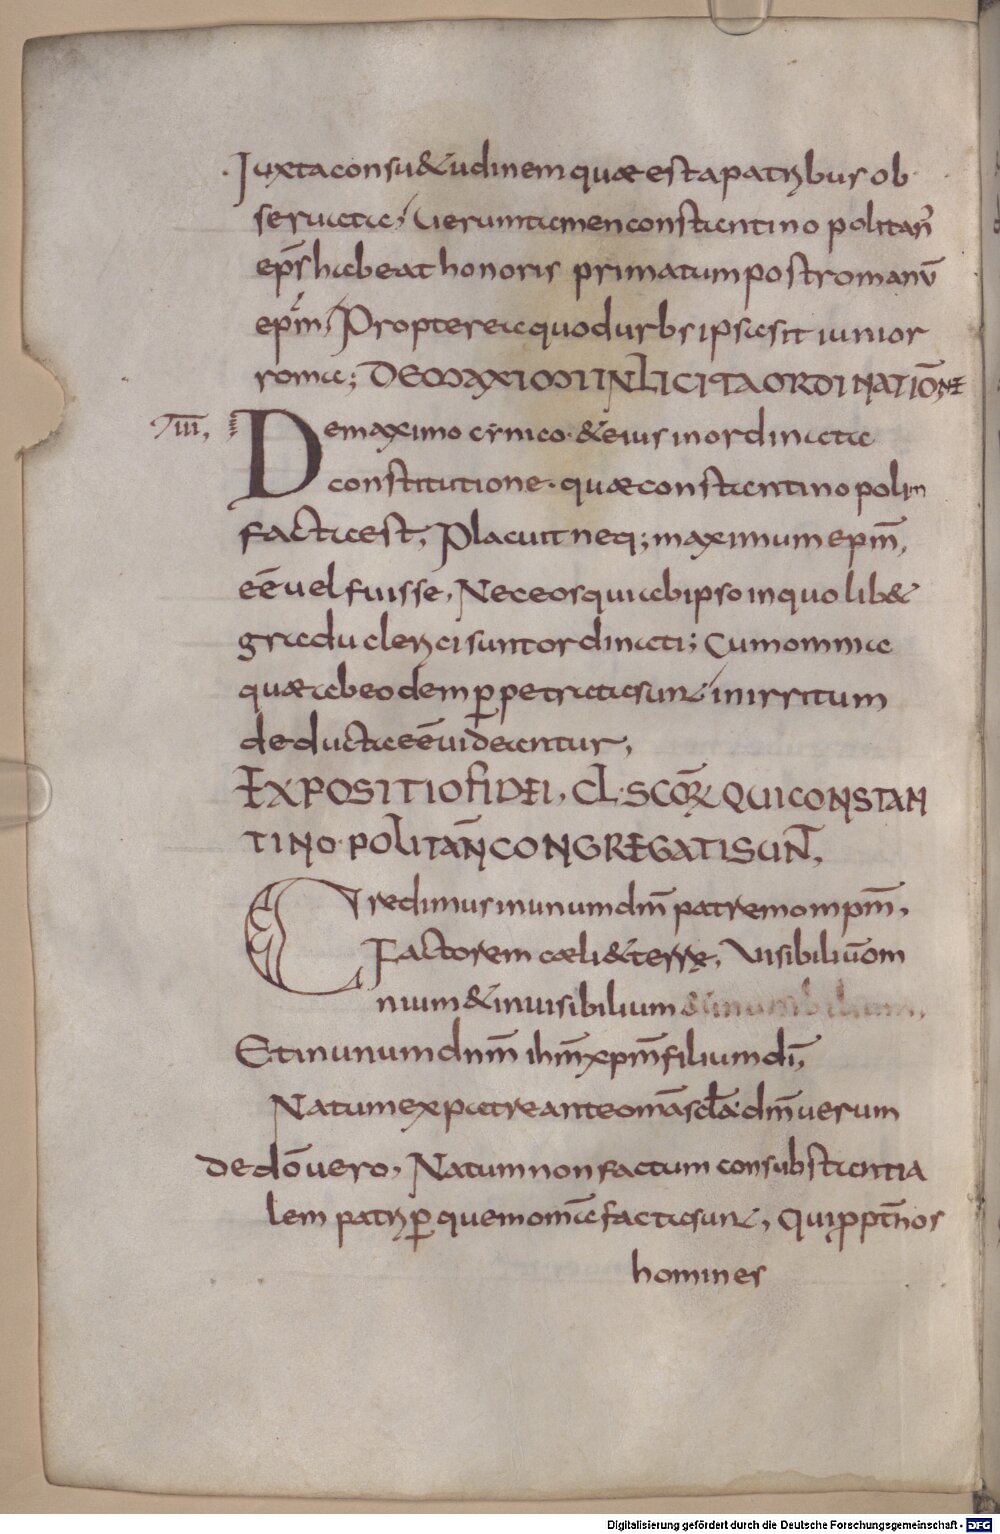 Iuxta consu&udinem quae est a patribus ob
seruata, Uerumtamen constantino politañ
ep̄s habeat honoris primatum post romanū
ep̄m, Propterea quod urbs ipsa sit iunior
roma; DE MAXIMI INLICITA ORDINATIŌNE
IIII, De maximo cynico & eius inordinata
constitutione quae constantinopolim
facta est, Placuit neq; maximum ep̄m,
eē uel fuisse, Nec eos qui ab ipso in quo lib&
gradu clerici sunt ordinati; Cum omnia
quae ab eodem p̱petrata sunt in irritum
deducta eē uideantur,
EXPOSITIO FIDEI, CL SCŌR QUI CONSTAN
TINO POLITAN̄ CONGREGATI SUNT,
Credimus in unum dm̄ patrem omp̄m,
Factorem caeli & terrę, Uisibiliū om
nium & inuisibilium & inuisibilium,
Et in unum dnm̄ ihm̄ xpm̄ filium dī,
Natum ex patre ante omā scl̄a dm̄ uerum
de dō uero, Natum non factum consubstantia
lem patri p̱ quem omīa facta sunt, Qui ppt̄ nos
homines
Digitalisierung gefördert durch die Deutsche Forschungsgemeinschaft - DFG